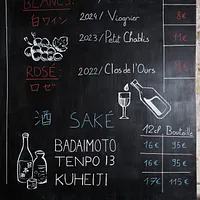 BLANCS:
白ワイン
2024/ Viognier 8€
2023/ Petit Chablis 11€
ROSÉ:
ロゼ
2022/ Clos de l'Ours 9€
酒 SAKÉ
12cl Bouteille
BADAIMOTO 16€ 95€
TENPO 13 16€ 95€
KUHEIJI 17€ 115€